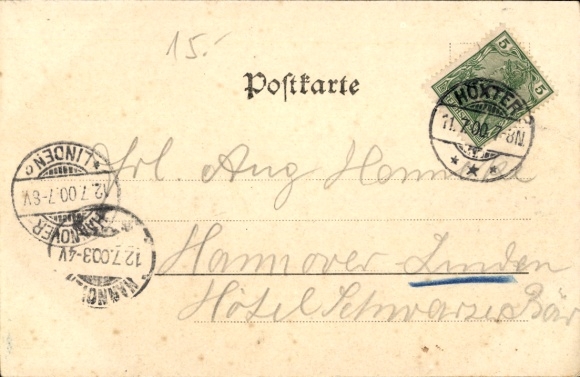 15.-
Postkarte
5
5
HÖXTER
11.7.00.7-8N.
* * *
Frl. Aug
* LINDEN
12.7.00.7-8V.
HANNOVER
HANNOVER
12.7.00.3-4V
Hannover-Linden
Hôtel Schwarzer Bär